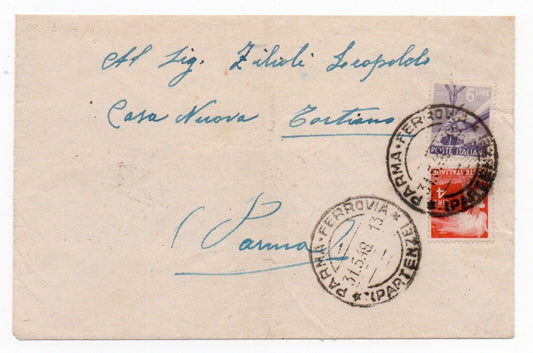 Al Sig. Zilioli Leopoldo
Casa Nuova Tortiano
(Parma)
6 LIRE
POSTE ITALIANE
PARMA-FERROVIA
(PARTENZE)
POSTE ITALIANE
LIRE 4
PARMA-FERROVIA
31.5.48 13
(PARTENZE)